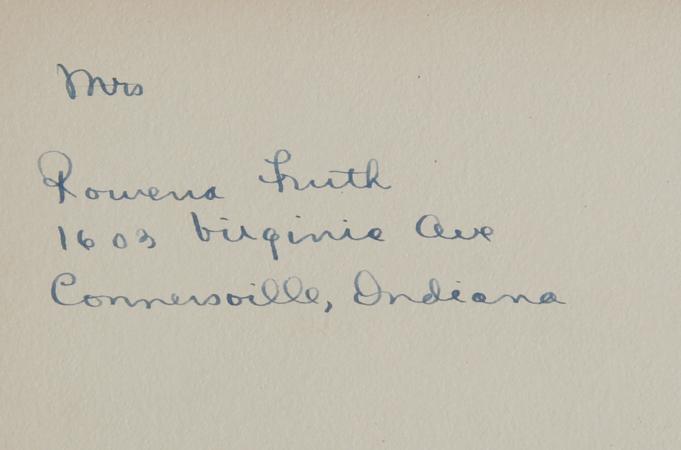 Mrs
Rowena Fruth
1603 Virginia Ave
Connersville, Indiana